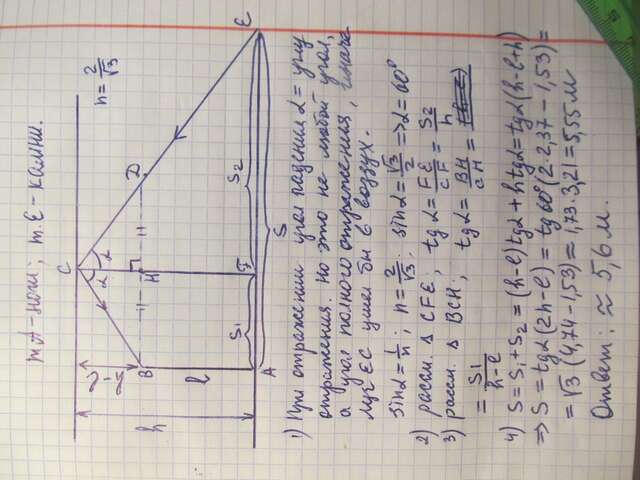 т.А-ноги; т.Е-камни.
n = 2/√3
C
α
α
D
h-l
B
H
h
l
S₁
S₂
A
F
E
S
1) При отражении угол падения α = углу
отражения. Но это не любой угол,
а угол полного отражения, иначе
луч ЕС ушел бы в воздух.
sinα = 1/n; n = 2/√3; sinα = √3/2 => α = 60°
2) рассм. Δ CFE; tgα = FE/CF = S₂/h
3) рассм. Δ BCH; tgα = BH/CH =
= S₁/h-l
4) S = S₁ + S₂ = (h-l)tgα + h tgα = tgα(h-l+h)
=> S = tgα(2h-l) = tg60°(2·2,37-1,53) =
= √3(4,74-1,53) = 1,73·3,21 = 5,55 м
Ответ: ≈ 5,6 м.